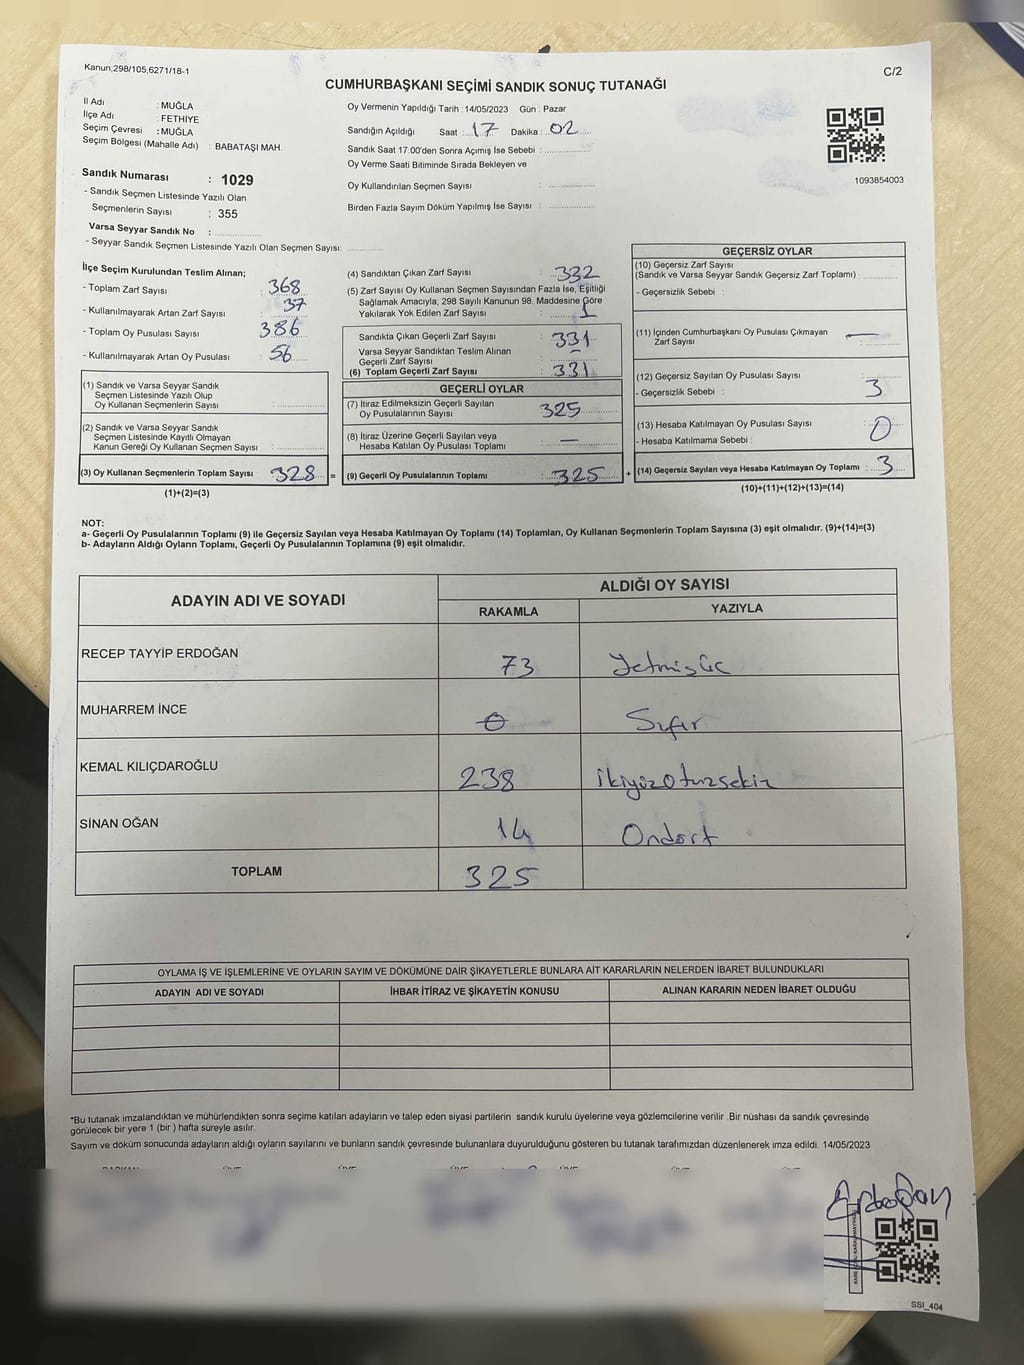 Kanun;298/105,6271/18-1
C/2
CUMHURBAŞKANI SEÇİMİ SANDIK SONUÇ TUTANAĞI
İl Adı : MUĞLA
İlçe Adı : FETHİYE
Seçim Çevresi : MUĞLA
Seçim Bölgesi (Mahalle Adı) : BABATAŞI MAH.
Sandık Numarası : 1029
- Sandık Seçmen Listesinde Yazılı Olan
Seçmenlerin Sayısı : 355
Varsa Seyyar Sandık No :
- Seyyar Sandık Seçmen Listesinde Yazılı Olan Seçmen Sayısı:
Oy Vermenin Yapıldığı Tarih : 14/05/2023 Gün : Pazar
Sandığın Açıldığı Saat : 17 Dakika : 02
Sandık Saat 17:00'den Sonra Açımış İse Sebebi :
Oy Verme Saati Bitiminde Sırada Bekleyen ve
Oy Kullandırılan Seçmen Sayısı :
Birden Fazla Sayım Döküm Yapılmış İse Sayısı :
1093854003
İlçe Seçim Kurulundan Teslim Alınan;
- Toplam Zarf Sayısı : 368
- Kullanılmayarak Artan Zarf Sayısı : 37
- Toplam Oy Pusulası Sayısı : 386
- Kullanılmayarak Artan Oy Pusulası : 56
(1) Sandık ve Varsa Seyyar Sandık
Seçmen Listesinde Yazılı Olup
Oy Kullanan Seçmenlerin Sayısı :
(2) Sandık ve Varsa Seyyar Sandık
Seçmen Listesinde Kayıtlı Olmayan
Kanun Gereği Oy Kullanan Seçmen Sayısı :
(3) Oy Kullanan Seçmenlerin Toplam Sayısı : 328 =
(1)+(2)=(3)
(4) Sandıktan Çıkan Zarf Sayısı : 332
(5) Zarf Sayısı Oy Kullanan Seçmen Sayısından Fazla İse, Eşitliği
Sağlamak Amacıyla, 298 Sayılı Kanunun 98. Maddesine Göre
Yakılarak Yok Edilen Zarf Sayısı : 1
Sandıkta Çıkan Geçerli Zarf Sayısı : 331
Varsa Seyyar Sandıktan Teslim Alınan
Geçerli Zarf Sayısı : -
(6) Toplam Geçerli Zarf Sayısı : 331
GEÇERLİ OYLAR
(7) İtiraz Edilmeksizin Geçerli Sayılan
Oy Pusulalarının Sayısı : 325
(8) İtiraz Üzerine Geçerli Sayılan veya
Hesaba Katılan Oy Pusulası Toplamı : —
(9) Geçerli Oy Pusulalarının Toplamı : 325 +
GEÇERSİZ OYLAR
(10) Geçersiz Zarf Sayısı
(Sandık ve Varsa Seyyar Sandık Geçersiz Zarf Toplamı) :
- Geçersizlik Sebebi :
(11) İçinden Cumhurbaşkanı Oy Pusulası Çıkmayan
Zarf Sayısı : —
(12) Geçersiz Sayılan Oy Pusulası Sayısı :
- Geçersizlik Sebebi : 3
(13) Hesaba Katılmayan Oy Pusulası Sayısı :
- Hesaba Katılmama Sebebi : 0
(14) Geçersiz Sayılan veya Hesaba Katılmayan Oy Toplamı : 3
(10)+(11)+(12)+(13)=(14)
NOT:
a- Geçerli Oy Pusulalarının Toplamı (9) ile Geçersiz Sayılan veya Hesaba Katılmayan Oy Toplamı (14) Toplamları, Oy Kullanan Seçmenlerin Toplam Sayısına (3) eşit olmalıdır. (9)+(14)=(3)
b- Adayların Aldığı Oyların Toplamı, Geçerli Oy Pusulalarının Toplamına (9) eşit olmalıdır.
ADAYIN ADI VE SOYADI
ALDIĞI OY SAYISI
RAKAMLA YAZIYLA
RECEP TAYYİP ERDOĞAN 73 Yetmişüç
MUHARREM İNCE 0 Sıfır
KEMAL KILIÇDAROĞLU 238 ikiyüzotuzsekiz
SİNAN OĞAN 14 Ondört
TOPLAM 325
OYLAMA İŞ VE İŞLEMLERİNE VE OYLARIN SAYIM VE DÖKÜMÜNE DAİR ŞİKAYETLERLE BUNLARA AİT KARARLARIN NELERDEN İBARET BULUNDUKLARI
ADAYIN ADI VE SOYADI İHBAR İTİRAZ VE ŞİKAYETİN KONUSU ALINAN KARARIN NEDEN İBARET OLDUĞU
*Bu tutanak imzalandıktan ve mühürlendikten sonra seçime katılan adayların ve talep eden siyasi partilerin sandık kurulu üyelerine veya gözlemcilerine verilir .Bir nüshası da sandık çevresinde
görülecek bir yere 1 (bir ) hafta süreyle asılır.
Sayım ve döküm sonucunda adayların aldığı oyların sayılarını ve bunların sandık çevresinde bulunanlara duyurulduğunu gösteren bu tutanak tarafımızdan düzenlenerek imza edildi. 14/05/2023
Erdoğan
SSI_404